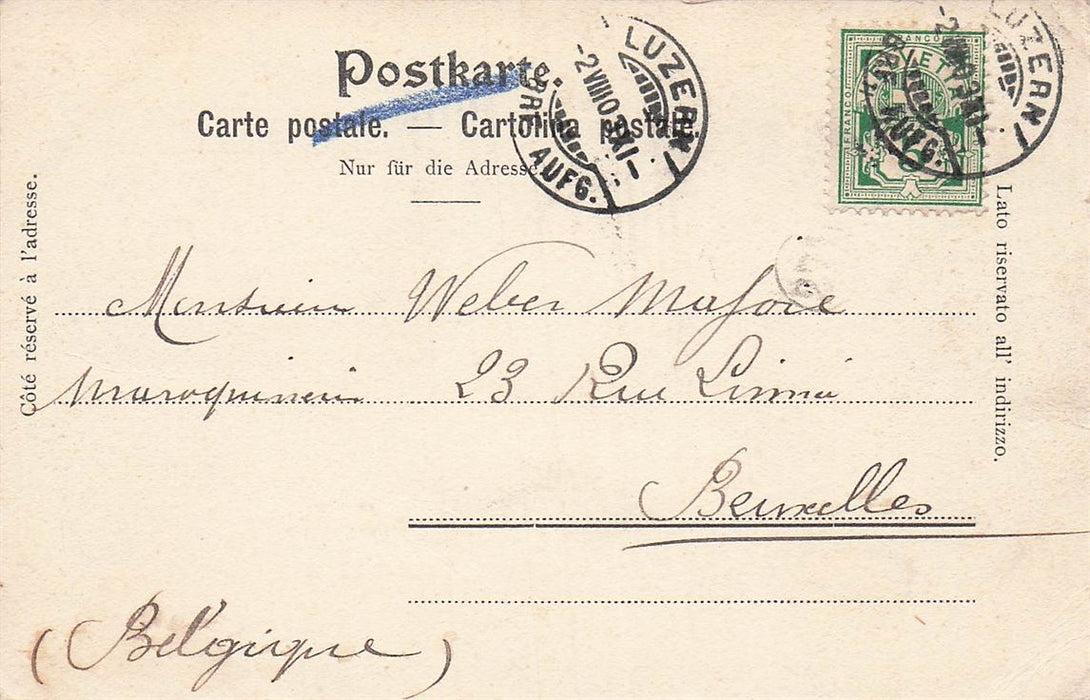 Postkarte.
Carte postale. — Cartolina postale.
Nur für die Adresse
LUZERN 1
BRF. AUFG.
FRANCO
LUZERN 1
BRF. AUFG.
Côté réservé à l'adresse.
Lato riservato all' indirizzo.
Monsieur Weber
Maroquinerie 23 Rue Linné
Bruxelles
(Belgique)